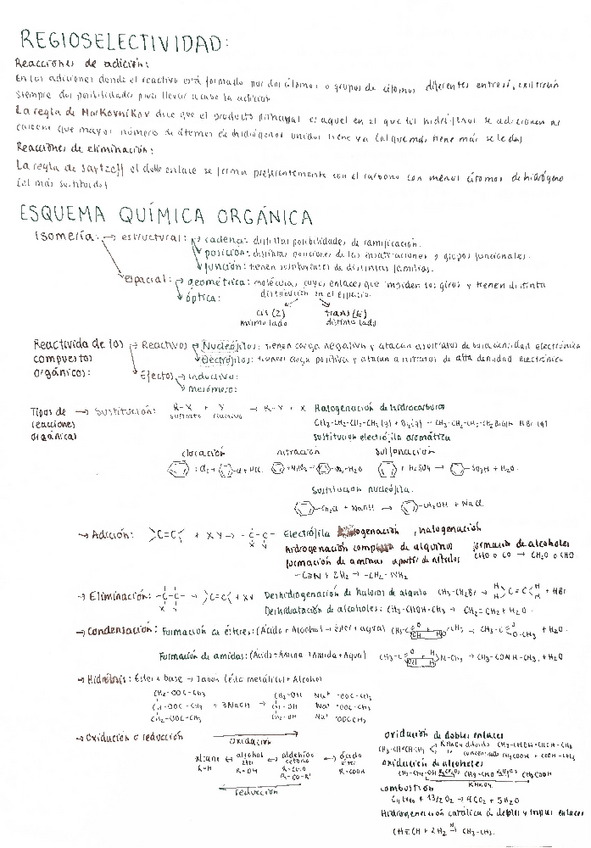 REGIOSELECTIVIDAD:
Reacciones de adición:
En las adiciones donde el reactivo está formado por dos átomos o grupos de átomos diferentes entre sí, existirán
siempre dos posibilidades para llevar a cabo la adición
La regla de Markovnikov dice que el producto principal es aquel en el que los hidrógenos se adicionan al
carbono que mayor número de átomos de hidrógenos unidos tiene ya (al que más tiene más se le da)
Reacciones de eliminación:
La regla de Saytzeff el doble enlace se forma preferentemente con el carbono con menos átomos de hidrógeno
(el más sustituido)
ESQUEMA QUÍMICA ORGÁNICA
Isomería: → estructural: → cadena: distintas posibilidades de ramificación.
posición: distintas posiciones de las insaturaciones o grupos funcionales.
función: tienen sustituyentes de distintas familias.
espacial: → geométrica: moléculas cuyos enlaces que impiden los giros y tienen distinta
distribución en el espacio.
óptica:
cis (Z) trans (E)
mismo lado distinto lado
Reactividad de los compuestos orgánicos: → Reactivos → Nucleófilos: tienen carga negativa y atacan a sustratos de baja densidad electrónica
electrófilos: tienen carga positiva y atacan a sustratos de alta densidad electrónica
Efectos → inductivo:
mesómero:
Tipos de reacciones orgánicas → Sustitución: R-X + Y → R-Y + X Halogenación de hidrocarburos
sustrato reactivo
sustitución electrófila aromática
cloración nitración sulfonación
Sustitución nucleófila.
→ Adición: >C=C< + XY → -C-C- Electrófila halogenación
X Y
hidrogenación de alquinos formación de alcoholes
formación de aminas a partir de nitrilos
-C≡N + 2H₂ → -CH₂-NH₂
→ Eliminación: -C-C- → >C=C< + XY Deshidrogenación de haluros de alquilo CH₃-CH₂Br → + HBr
X Y
Deshidratación de alcoholes: → CH₂=CH₂ + H₂O
→ Condensación: Formación de ésteres: (Ácido + Alcohol → Éster + agua) + H₂O
Formación de amidas: (Ácido + Amina → Amida + Agua) + H₂O
→ Hidrólisis: Éster + base → Jabón (sal metálica) + Alcohol
CH₂-OOC-CH₃ CH₂-OH Na⁺ ⁻OOC-CH₃
CH-OOC-CH₃ + 3NaOH → CH-OH Na⁺ ⁻OOC-CH₃
CH₂-OOC-CH₃ CH₂-OH Na⁺ ⁻OOCCH₃
→ Oxidación o reducción
oxidación
alcano alcohol aldehído cetona ácido
R-H R-OH R-CO-R' R-COOH
reducción
oxidación de dobles enlaces
oxidación de alcoholes
combustión
C₄H₁₀ + 13/2 O₂ → 4CO₂ + 5H₂O
Hidrogenación catalítica de dobles y triples enlaces
CH≡CH + 2H₂ → CH₃-CH₃.